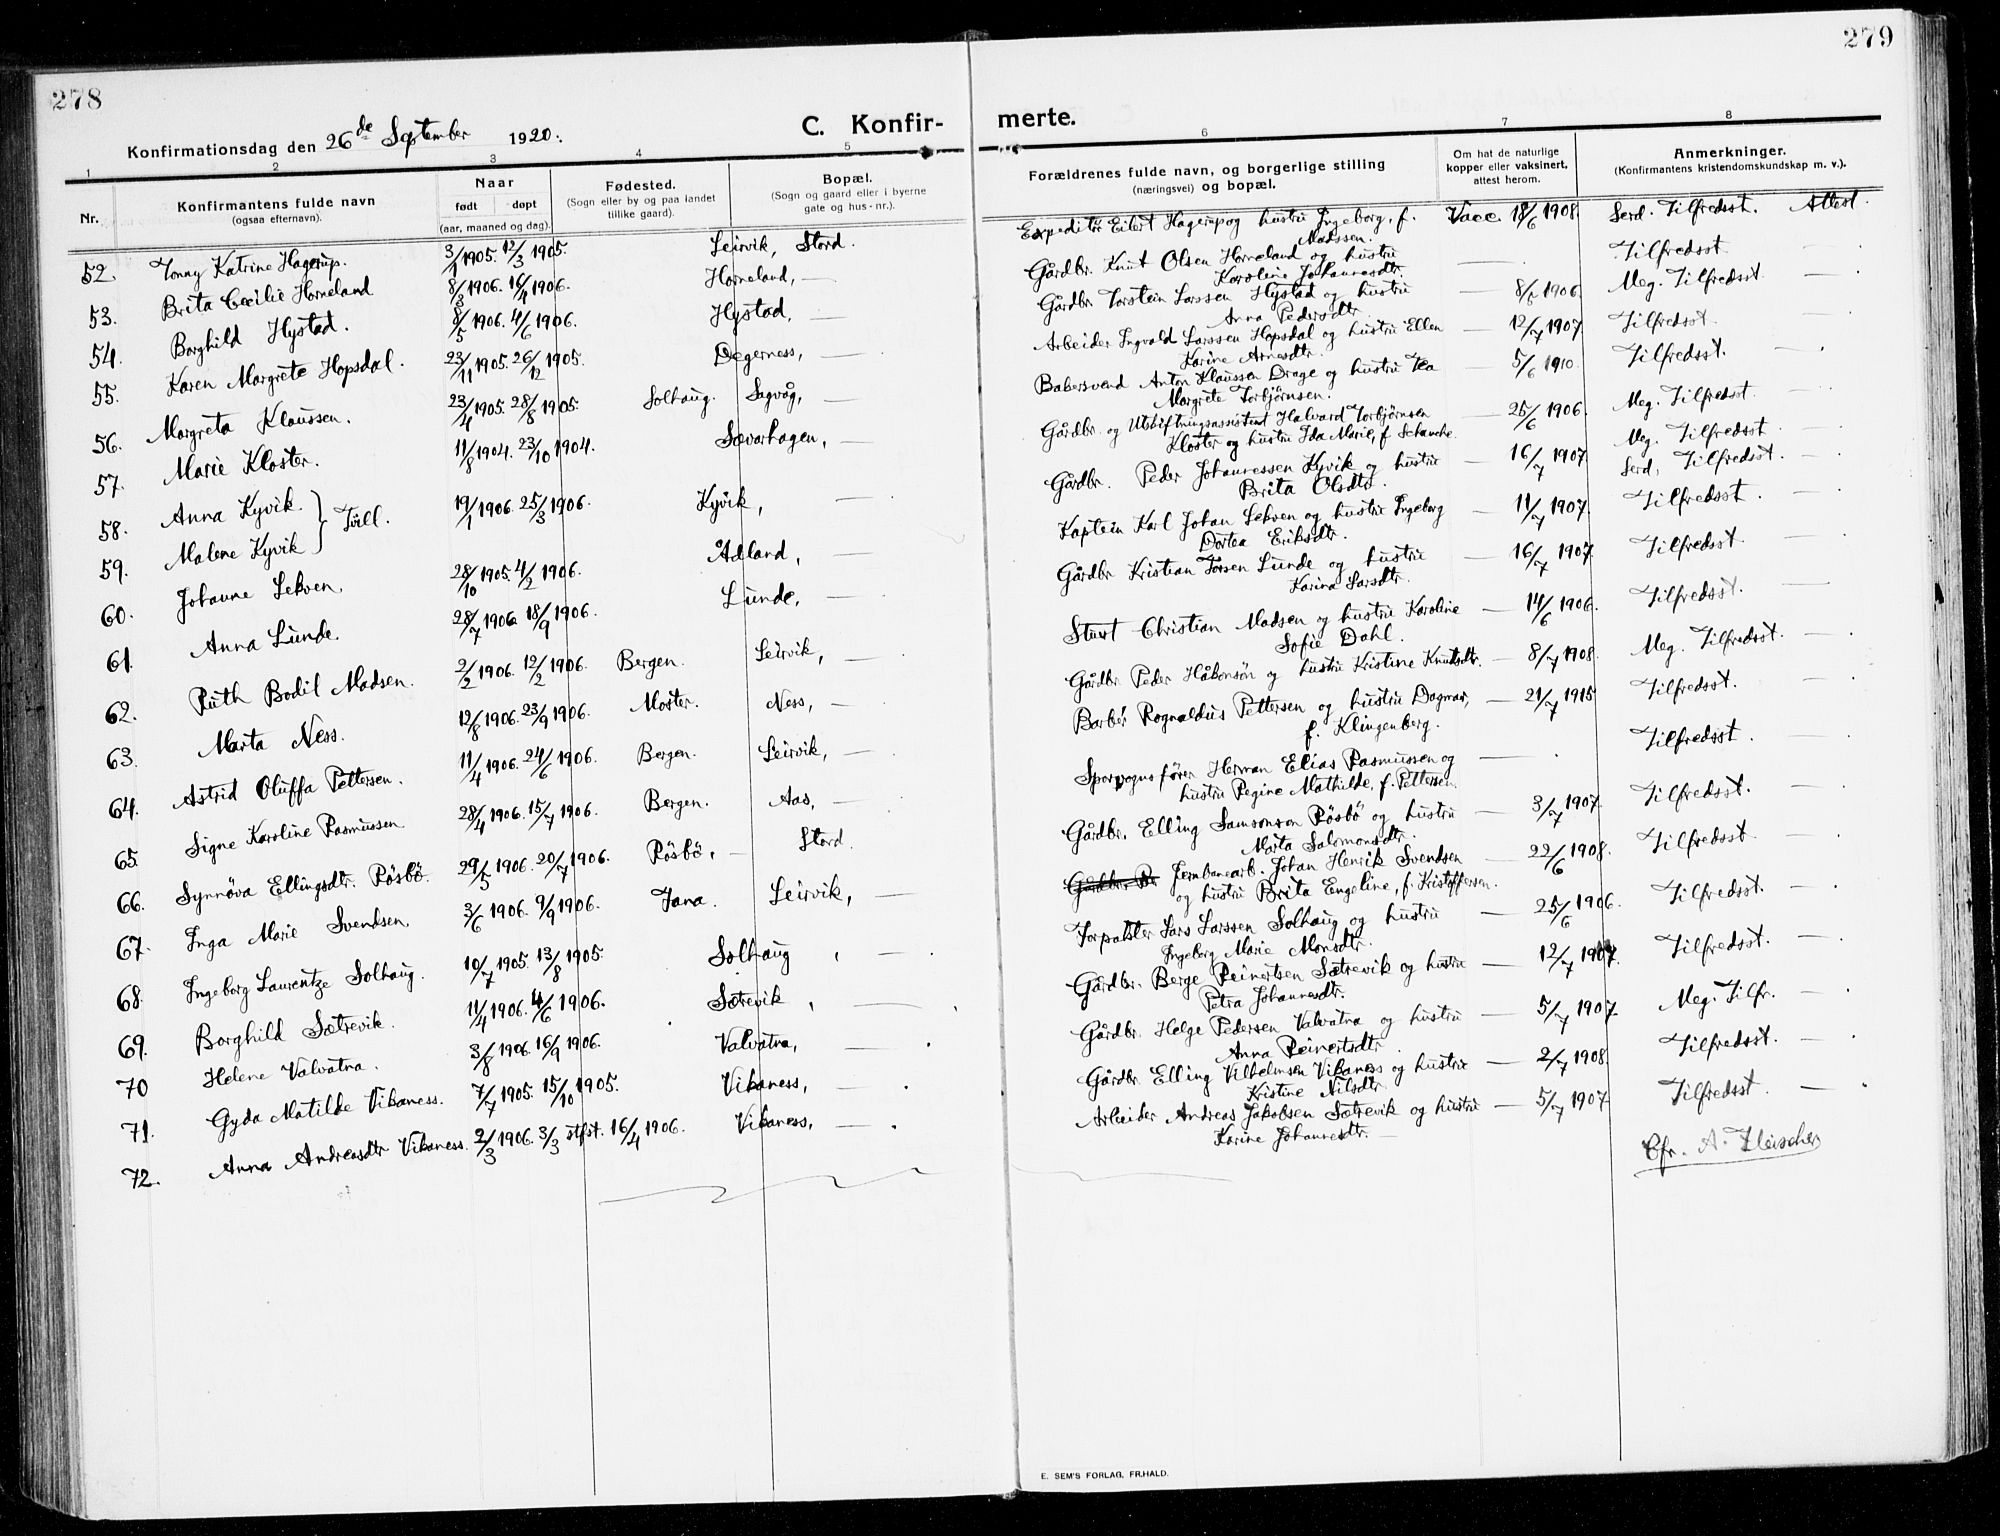 278
279
Konfirmationsdag den 26de September 1920.
C. Konfir-
merte.
1 2 3 4 5 6 7 8
Nr.
Konfirmantens fulde navn
(ogsaa efternavn).
Naar
født døpt
(aar, maaned og dag).
Fødested.
(Sogn eller by og paa landet
tillike gaard).
Bopæl.
(Sogn og gaard eller i byerne
gate og hus-nr.).
Forældrenes fulde navn, og borgerlige stilling
(næringsvei) og bopæl.
Om hat de naturlige
kopper eller vaksinert,
attest herom.
Anmerkninger.
(Konfirmantens kristendomskundskap m. v.).
52. Tonny Katrine Hagerup. 3/1 1905. 12/3 1905. Leirvik, Stord.
53. Brita Cecilie Horneland 8/3 1906. 16/4 1906. Horneland, —
54. Borghild Hystad. 8/5 1906. 4/6 1906. Hystad, —
55. Karen Margrete Hopsdal. 23/11 1905. 26/12 1905. Degerness, —
56. Margreta Klaussen. 23/4 1905. 28/8 1905. Solhaug. Sagvåg, —
57. Marie Kloster. 11/8 1904. 23/10 1904. Sævarhagen, —
58. Anna Kyvik. } Tvill. 19/1 1906. 25/3 1906. Kyvik, —
59. Malene Kyvik
60. Johanne Lekven 28/10 1905. 4/2 1906. Ådland, —
61. Anna Lunde. 28/7 1906 18/9 1906. Lunde, —
62. Ruth Bodil Madsen. 2/2 1906. 12/2 1906. Bergen. Leirvik, —
63. Marta Ness. 12/8 1906. 23/9 1906. Moster. Ness, —
64. Astrid Oluffa Pettersen. 11/4 1906. 24/6 1906. Bergen. Leirvik, —
65. Signe Karoline Rasmussen 28/4 1906. 15/7 1906. Bergen. Aas, —
66. Synnöva Ellingsdtr. Rösbö. 29/5 1906. 20/7 1906. Rösbö, — Stord.
67. Inga Marie Svendsen 3/6 1906. 9/9 1906. Jana. Leirvik, —
68. Ingeborg Laurentze Solhaug. 10/7 1905. 13/8 1905. Solhaug , —
69. Borghild Sætrevik. 11/4 1906. 4/6 1906. Sætrevik , —
70 Helene Valvatna. 3/8 1906. 16/9 1906. Valvatna, — .
71. Gyda Matilde Vikaness. 7/7 1905. 15/10 1905. Vikaness, — .
72. Anna Andreasdtr Vikaness. 2/3 1906. 3/3 stfst. 16/4 1906. Vikaness, — .
Expeditör Eilert Hagerup og hustru Ingeborg, f. Vacc. 18/6 1908. Serd. Tilfredsst. Attest.
Madssen.
Gårdbr. Knut Olsen Horneland og hustru — . Tilfredsst
Karoline Johannesdtr.
Gårdbr Torstein Larssen Hystad og hustru — 8/6 1906. Meg. Tilfredsst — .
Anna Pedersdtr.
Arbeider Ingvald Larssen Hopsdal og hustru Ellen — 12/7 1907. Tilfredsst. — .
Karine Arnesdtr.
Bakersvend Anton Klaussen Drage og hustru Tea — 5/6 1910. Tilfredsst. — .
Margrete Torbjørnsen.
Gårdbr. og Utskiftningsassistent Halvard Torbjørnsen — 25/6 1906. Meg. Tilfredsst. — .
Kloster og hustru Ida Marie, f. Schanche.
Gårdbr. Peder Johannessen Kyvik og hustru — 16/7 1907. Meg. Tilfredsst. — .
Brita Olsdtr. Serd. Tilfredsst. — .
Kaptein Karl Johan Lekven og hustru Ingeborg — 11/7 1907. Tilfredsst. — .
Dortea Eriksdtr.
Gårdbr Kristian Torsen Lunde og hustru — 16/7 1907. Tilfredsst. — .
Karina Larsdtr.
Stuert Christian Madsen og hustru Karoline — 14/6 1906. Tilfredsst. —
Sofie Dahl.
Gårdbr. Peder Håkonsön og hustru Kristine Knutsdtr. — 8/7 1908. Meg. Tilfredsst. — .
Barber Rognaldus Pettersen og hustru Dagmar, — 21/7 1915 Tilfredsst. — .
f. Klingenberg.
Sporvognsfører Herman Elias Rasmussen og — . Tilfredsst. — .
hustru Regine Mathilde, f. Pettersen.
Gårdbr. Elling Samsonson Rösbö og hustru — 3/7 1907. Tilfredsst. — .
Marta Salomonsdtr.
Jernbanearb. Johan Henrik Svendsen — 22/6 1908. Tilfredsst. — .
og hustru Brita Engeline, f. Kristoffersen.
Lars Larssen Solhaug og hustru — 25/6 1906. Tilfredsst. — .
Ingeborg Marie Monsdtr.
Gårdbr. Berge Reinertsen Sætrevik og hustru — 12/7 1907. Tilfredsst. — .
Petra Johannesdtr.
Gårdbr. Helge Pedersen Valvatna og hustru — 5/7 1907. Meg. Tilfr. — .
Anna Reinertsdtr.
Gårdbr. Elling Vilhelmsen Vikaness og hustru — 2/7 1908. Tilfredsst. — .
Kristine Nilsdtr.
Arbeider Andreas Jakobsen Sætrevik og hustru — 5/7 1907. Tilfredsst. — .
Karine Johannesdtr. —
Chr. A. Fleischer
E. SEM'S FORLAG, FR.HALD.